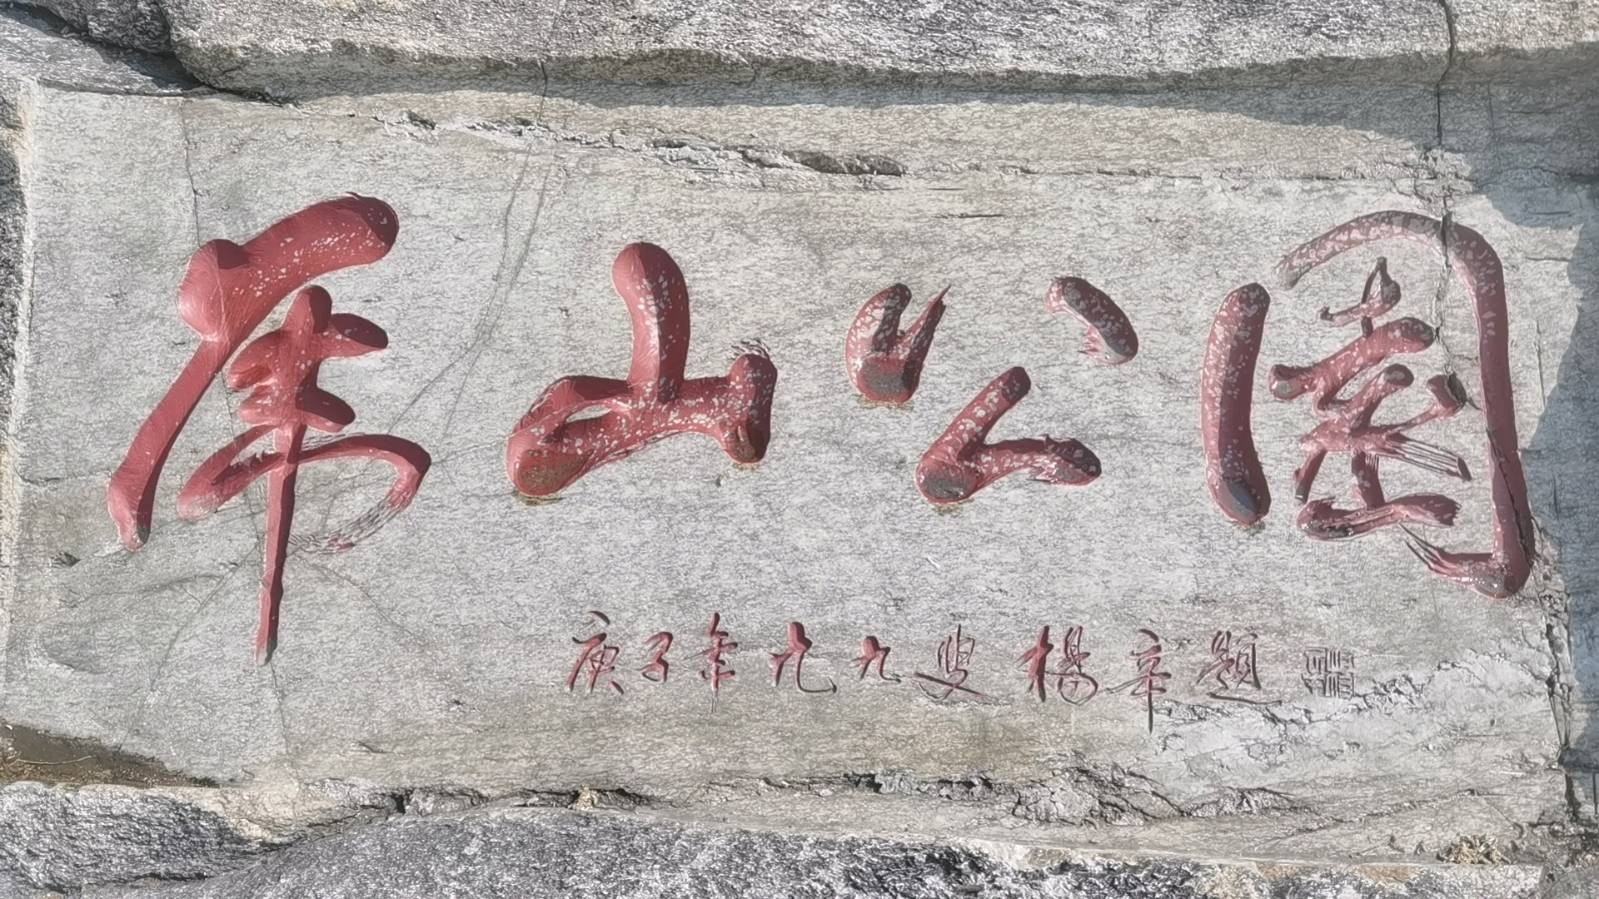 虎山公園
庚子年九九叟楊辛題